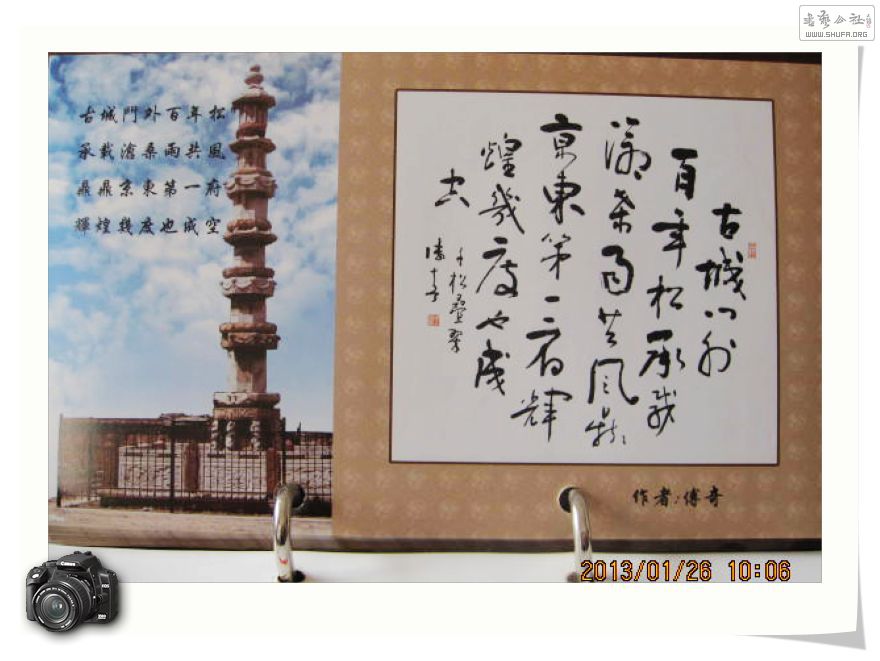 書藝公社
WWW.SHUFA.ORG
古城門外百年松
承載滄桑雨共風
鼎鼎京東第一府
輝煌幾度也成空
古城门外
百年松承载
滄桑雨共风鼎々
京東第一府輝
煌幾度也成
空
千松叠翠
傅奇
作者:傅奇
2013/01/26 10:06
Canon
EOS